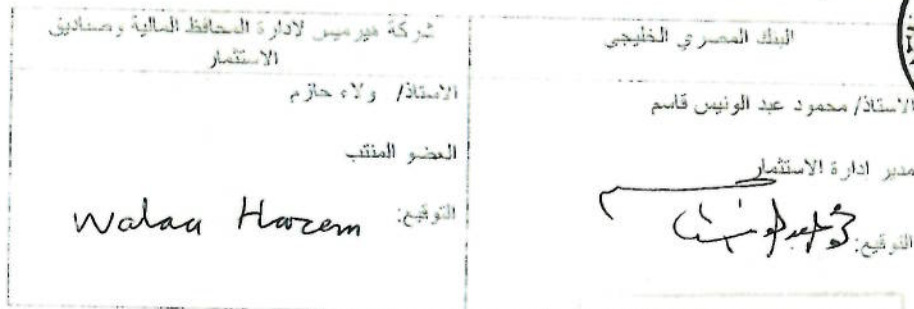 البنك المصري الخليجي
الاستاذ/ محمود عبد الونيس قاسم
مدير ادارة الاستثمار
التوقيع:
شركة هيرميس لادارة المحافظ المالية وصناديق
الاستثمار
الاستاذ/ ولاء حازم
العضو المنتب
التوقيع: Walaa Hazem